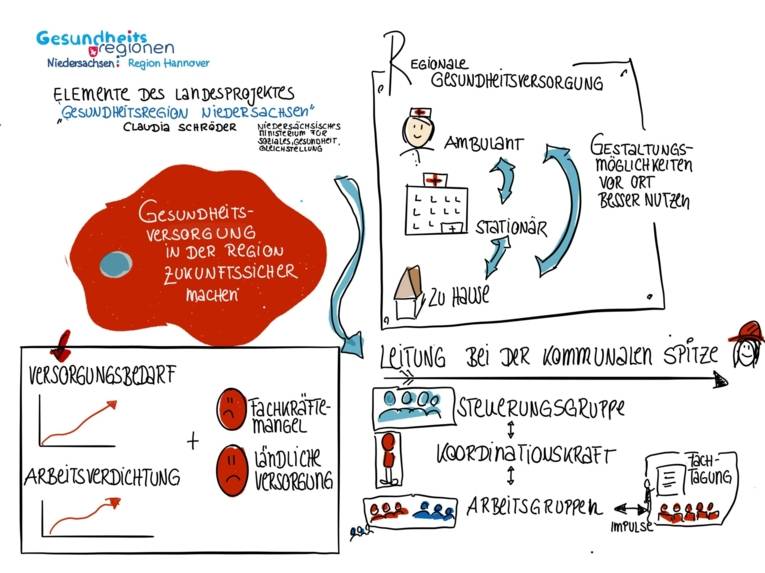 Gesundheits
regionen
Niedersachsen: Region Hannover
ELEMENTE DES LANDESPROJEKTES
"GESUNDHEITSREGION NIEDERSACHSEN"
CLAUDIA SCHRÖDER
NIEDERSÄCHSISCHES
MINISTERIUM FÜR
SOZIALES, GESUNDHEIT,
GLEICHSTELLUNG
GESUNDHEITS-
VERSORGUNG
IN DER REGION
ZUKUNFTSSICHER
MACHEN
REGIONALE
GESUNDHEITSVERSORGUNG
AMBULANT
STATIONÄR
ZU HAUSE
GESTALTUNGS-
MÖGLICHKEITEN
VOR ORT
BESSER NUTZEN
VERSORGUNGSBEDARF
ARBEITSVERDICHTUNG
+
FACHKRÄFTE-
MANGEL
LÄNDLICHE
VERSORGUNG
LEITUNG BEI DER KOMMUNALEN SPITZE
STEUERUNGSGRUPPE
KOORDINATIONSKRAFT
ARBEITSGRUPPEN
IMPULSE
FACH-
TAGUNG